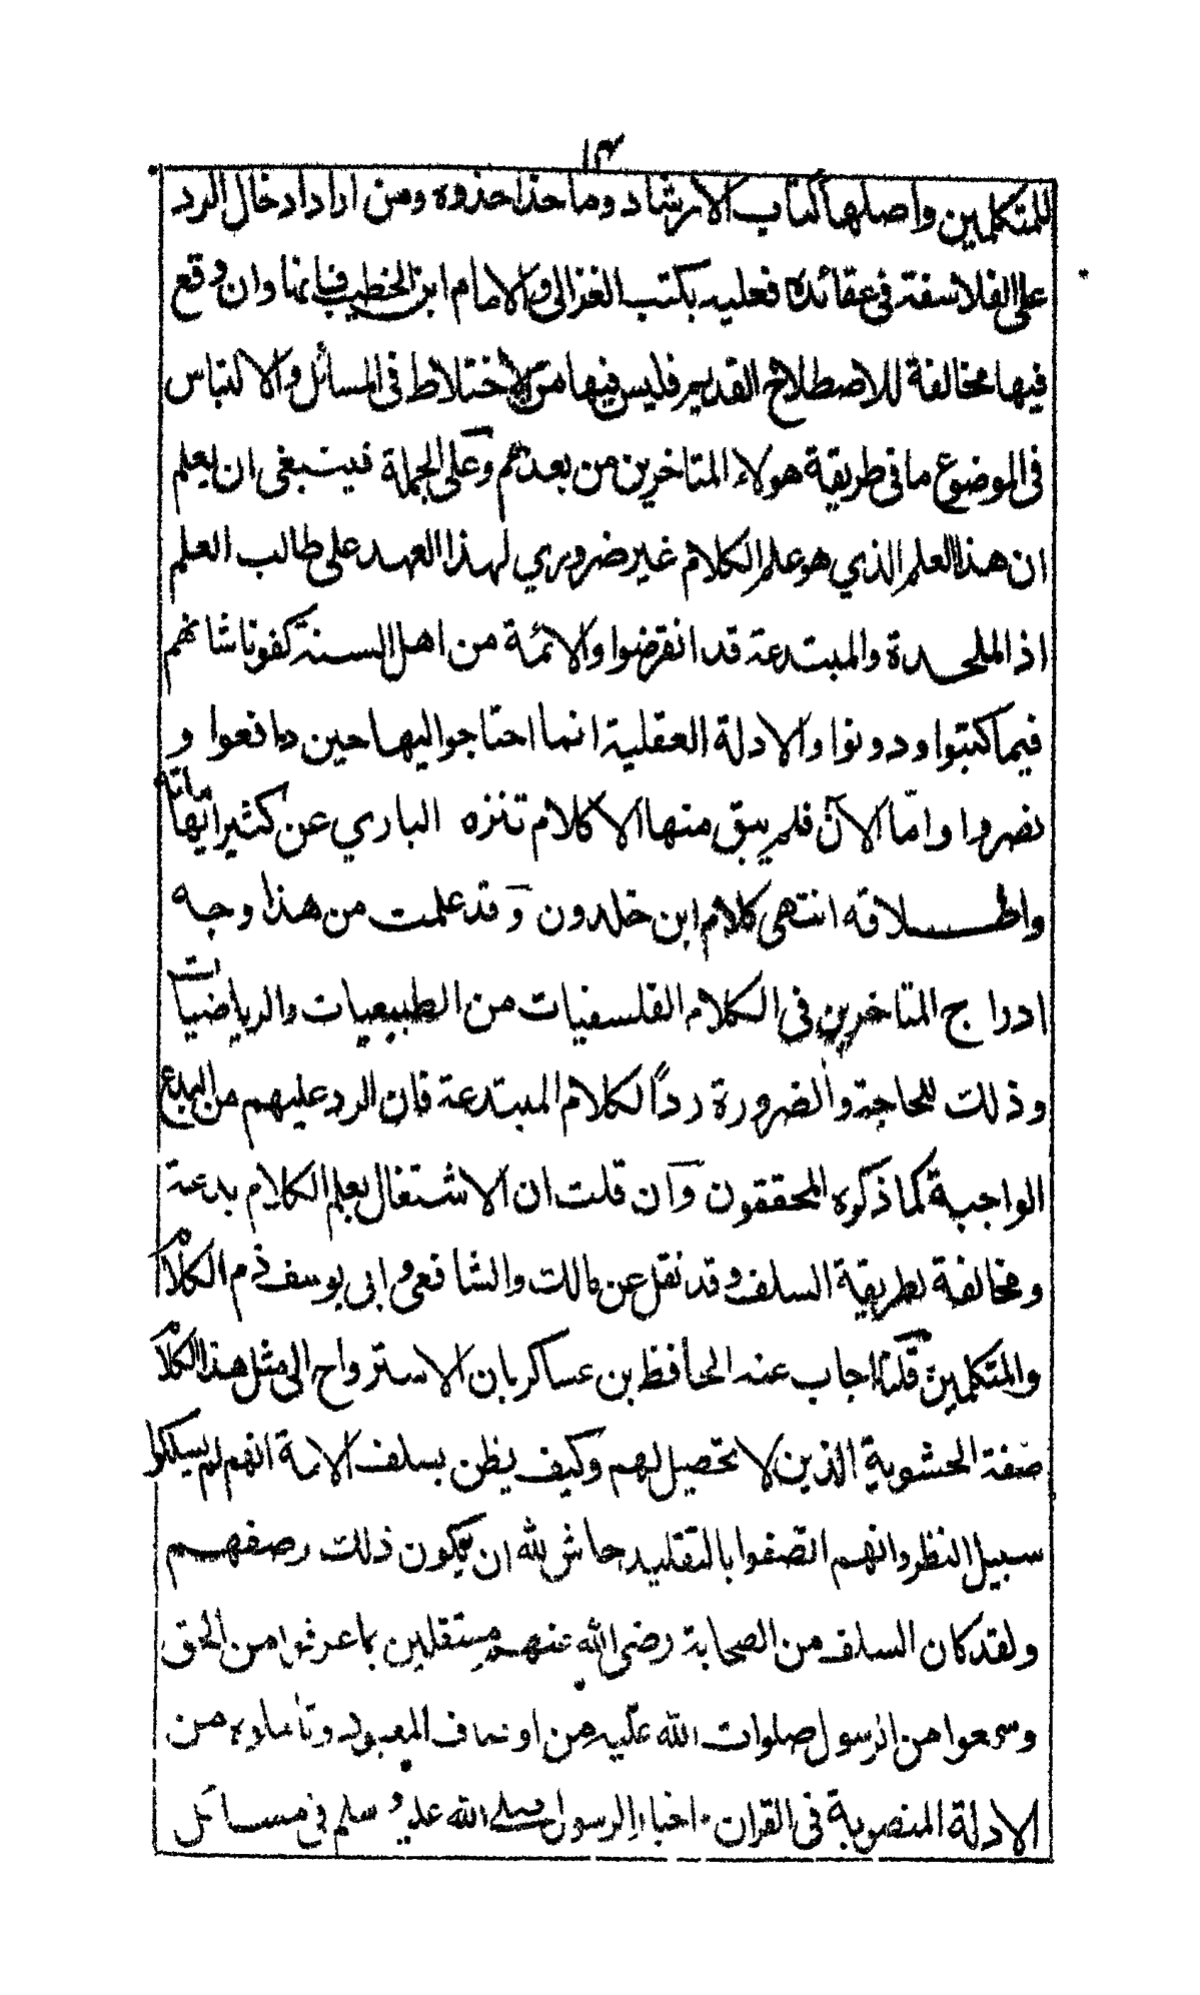 ١٣
للمتكلمين واصلها كتاب الارشاد وما حذا حذوه ومن اراد ادخال الرد
على الفلاسفة فى عقائده فعليه بكتب الغزالى والامام ابن الخطيب فانها وان وقع
فيها مخالفة للاصطلاح القديم فليس فيها من الاختلاط فى المسائل والالتباس
فى الموضوع ما فى طريقة هولاء المتاخرين من بعدهم وعلى الجملة فينبغى ان يعلم
ان هذا العلم الذي هو علم الكلام غير ضروري لهذا العهد على طالب العلم
اذ الملحدة والمبتدعة قد انقرضوا والائمة من اهل السنة كفونا شانهم
فيما كتبوا ودونوا والادلة العقلية انما احتاجوا اليها حين دافعوا و
نصروا وامّا الآن فلم يبق منها الا كلام تنزه الباري عن كثير ايهاماته
واطلاقه انتهى كلام ابن خلدون وقد علمت من هذا وجه
ادراج المتاخرين فى الكلام الفلسفيات من الطبيعيات والرياضيات
وذلك للحاجة والضرورة ردًا لكلام المبتدعة فان الرد عليهم من البدع
الواجبة كما ذكره المحققون وان قلت ان الاشتغال بعلم الكلام بدعة
ومخالفة لطريقة السلف وقد نقل عن مالك والشافعى وابى يوسف ذم الكلام
والمتكلمين قلنا اجاب عنه الحافظ بن عساكر بان الاسترواح الى مثل هذا الكلام
صفة الحشوية الذين لا تحصيل لهم وكيف يظن بسلف الامة انهم لم يسلكوا
سبيل النظر وانهم اتصفوا بالتقليد حاش لله ان يكون ذلك وصفهم
ولقد كان السلف من الصحابة رضى الله عنهم مستقلين بما عرفوا من الحق
وسمعوا من الرسول صلوات الله عليه من اوصاف المعبود وتاملوه من
الادلة المنصوبة فى القران واخبار الرسول صلى الله عليه وسلم فى مسائل